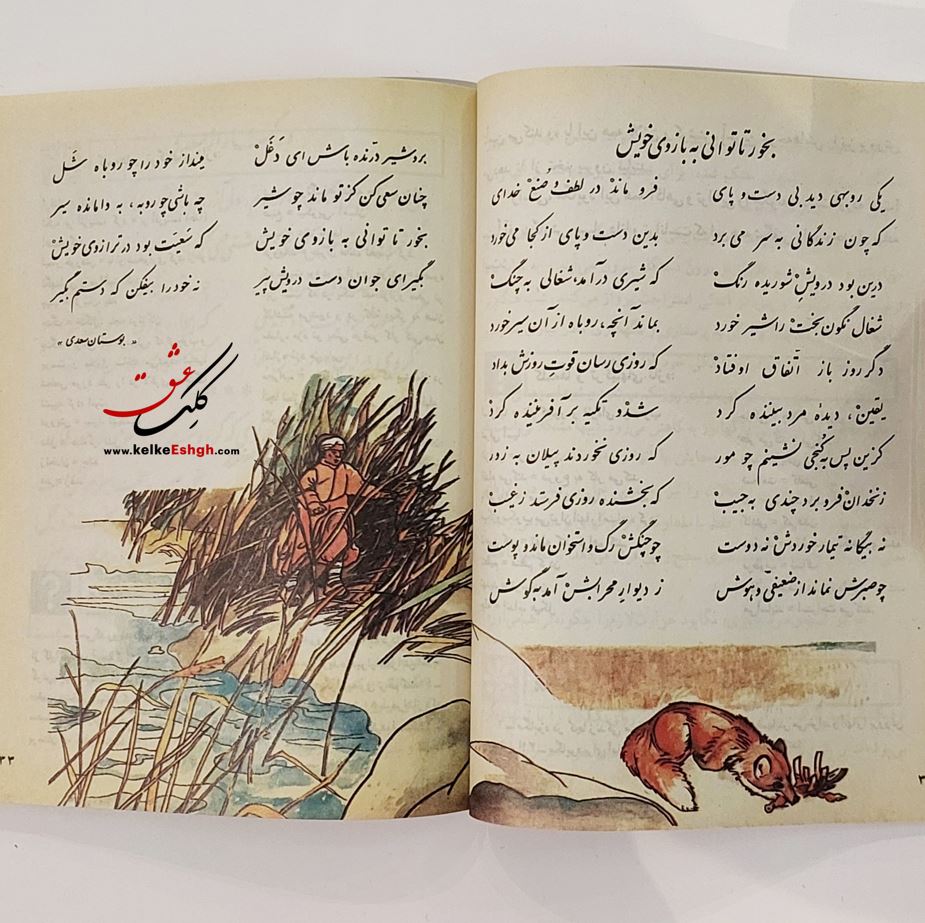 بخور تا توانی به بازوی خویش
یکی روبهی دید بی دست و پای فرو ماند در لطف و صُنعِ خدای
که چون زندگانی به سر می برد بدین دست و پای از کجا می خورد
درین بود درویشِ شوریده رنگ که شیری در آمد، شغالی به چنگ
شغال نگون بخت را شیر خورد بماند آنچه، روباه از آن سیر خورد
دگر روز باز اتّفاق اوفتاد که روزی رسان قوتِ روزش بداد
یقین، دیدهٔ مرد بیننده کرد شد و تکیه بر آفریننده کرد
کزین پس به کُنجی نشینم چو مور که روزی نخوردند پیلان به زور
زنخدان فرو برد چندی به جیب که بخشنده روزی فرستد ز غیب
نه بیگانه تیمار خوردش نه دوست چو چنگش رگ و استخوان ماند و پوست
چو صبرش نماند از ضعیفی و هوش ز دیوارِ محرابش آمد به گوش
برو شیر درّنده باش ای دَغَل مینداز خود را چو روباه شَل
چنان سعی کن کز تو ماند چو شیر چه باشی چو روبه، به وامانده سیر
بخور تا توانی به بازوی خویش که سَعیَت بود در ترازوی خویش
بگیر ای جوان دست درویش پیر نه خود را بیفکن که دستم بگیر
« بوستان سعدی »
کلک عشق
www.kelkeEshgh.com
۳۳